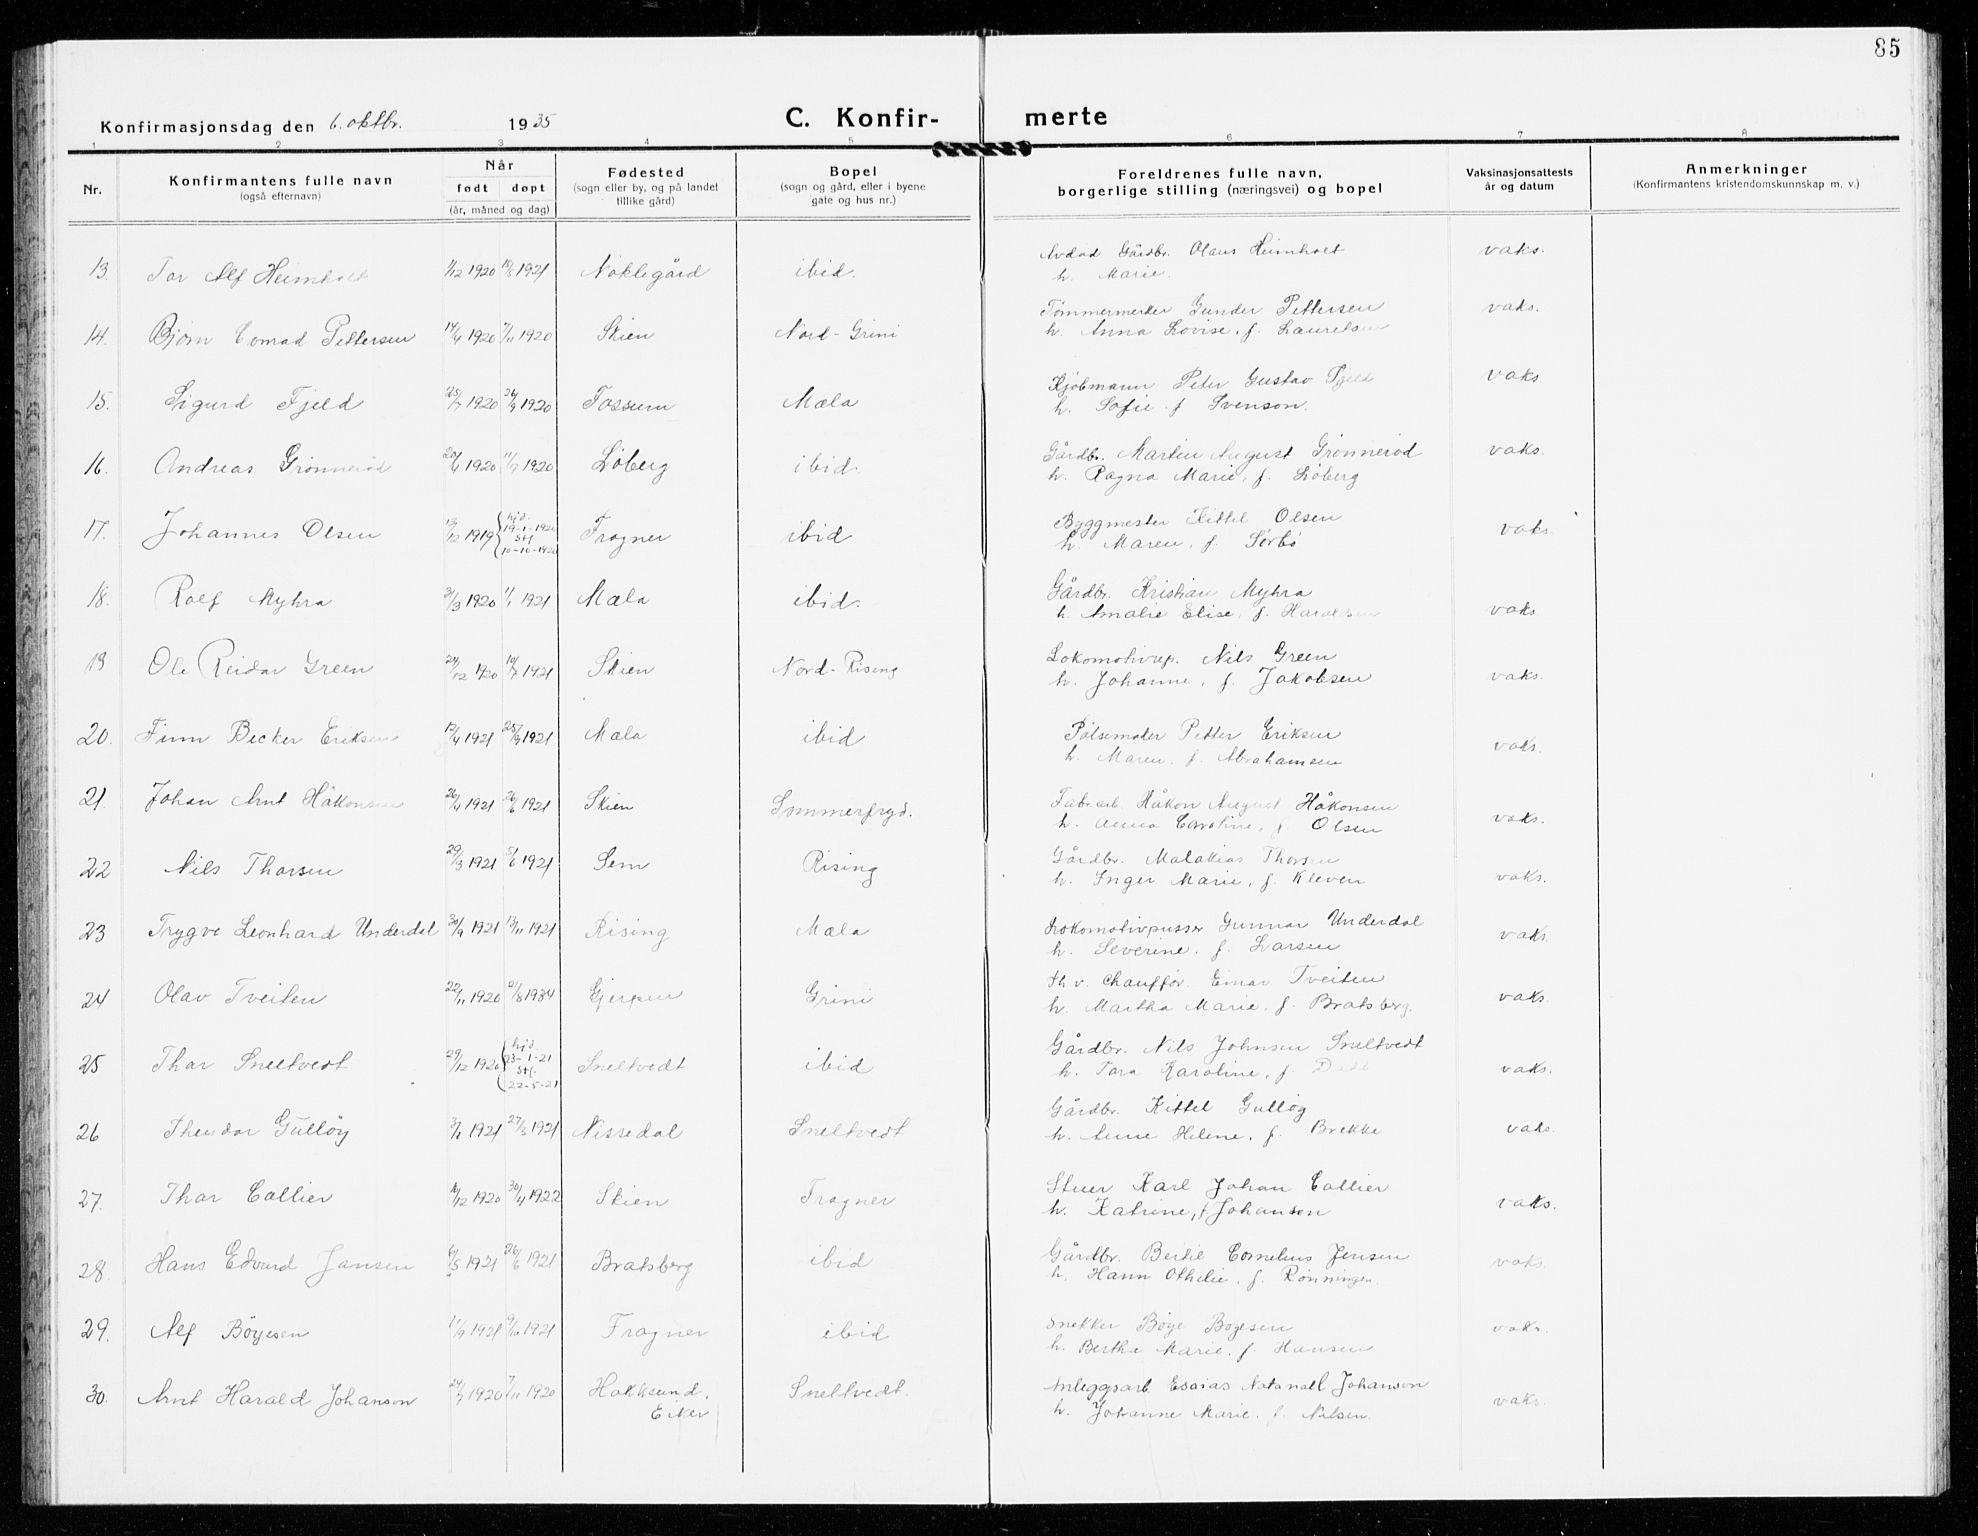 85
Konfirmasjonsdag den 6. oktbr. 1935 C. Konfir- merte
1 2 3 4 5 6 7 8
Nr.
Konfirmantens fulle navn
(også efternavn)
Når
født døpt
(år, måned og dag)
Fødested
(sogn eller by, og på landet
tillike gård)
Bopel
(sogn og gård, eller i byene
gate og hus nr.)
Foreldrenes fulle navn,
borgerlige stilling (næringsvei) og bopel
Vaksinasjonsattests
år og datum
Anmerkninger
(Konfirmantens kristendomskunnskap m. v.)
13. Tor Alf Heimholt 1/12 1920 1921 Noklegård ibid. Avdød Gårdbr. Olaus Heimholt vaks.
h. Marie.
14. Bjørn Conrad Pettersen 14/4 1920 7/11 1920 Skien Nord-Grini Tømmermerker Gunder Pettersen vaks.
h. Anna Lovise, f. Lauretsen
15. Sigurd Fjeld 25/7 1920 26/9 1920 Fossum Mæla Kjøbmann Peter Gustav Fjeld vaks.
h. Sofie f. Svenson.
16. Andreas Grønnerød 20/4 1920 11/7 1920 Løberg ibid. Gårdbr. Martin August Grønnerød vaks.
h. Ragna Marie, f. Løberg
17. Johannes Olsen 13/12 1919 hjd. 19-1-1920 stf 10-10-1920 Frogner ibid Byggmester Kittel Olsen vaks
h. Maren, f. Sørbø
18. Rolf Myhra 31/3 1920 1/1 1921 Mæla ibid. Gårdbr. Kristian Myhra
h. Amalie Elise, f. Haraldsen vaks
19 Ole Reidar Green 24/12 1920 10/7 1921 Skien Nord-Rising Lokomotivrep. Nils Green
h. Johanne, f. Jakobsen vaks.
20. Finn Becker Eriksen 12/4 1921 25/9 1921 Mæla ibid Pølsemaker Petter Eriksen
h. Maren, f. Abrahamsen vaks.
21. Johan Arnt Håkonsen 26/4 1921 26/6 1921 Skien Sommerfryd. Fabr.arb. Håkon August Håkonsen
h. Anna Caroline, f. Olsen vaks.
22 Nils Thorsen 29/3 1921 5/6 1921 Sem Rising Gårdbr. Malakias Thorsen
h. Inger Marie, f. Kleven vaks.
23 Trygve Leonhard Underdal 30/9 1921 13/11 1921 Rising Mæla Lokomotivpusser Gunnar Underdal
h. Severine, f. Larsen vaks.
24 Olav Tveiten 22/11 1920 21/8 1934 Gjerpen Grini Th. v. Chauffør. Einar Tveiten
h. Martha Marie, f. Bratsberg. vaks.
25 Thor Sneltvedt 29/12 1920 hjd. 23-1-21 stf. 22-5-21 Sneltvedt ibid Gårdbr. Nils Johnsen Sneltvedt
h. Tora Karoline, f. vaks.
26 Theodor Gulløy 3/1 1921 27/3 1921 Nissedal Sneltvedt Gårdbr. Kittel Gulløy
h. Anne Helene, f. Brekke vaks.
27. Thor Collier 16/12 1920 30/4 1922 Skien Frogner Stuer Karl Johan Collier
h. Katrine, f. Johanson vaks.
28. Hans Edvard Jansen 1921 26/6 1921 Bratsberg ibid Gårdbr. Bertil Cornelius Jensen
h. Hann Othelie, f. Rønningen. vaks.
29. Alf Böyesen 1921 9/10 1921 Frogner ibid Snekker Böye Böyesen
h. Bertha Marie, f. Hansen vaks.
30. Arnt Harald Johanson 24/7 1920 7/11 1920 Hokksund, Sneltvedt. Anleggsarb. Esaias Natanall Johanson
Eiker h. Johanne Marie, f. Nilsen. vaks.